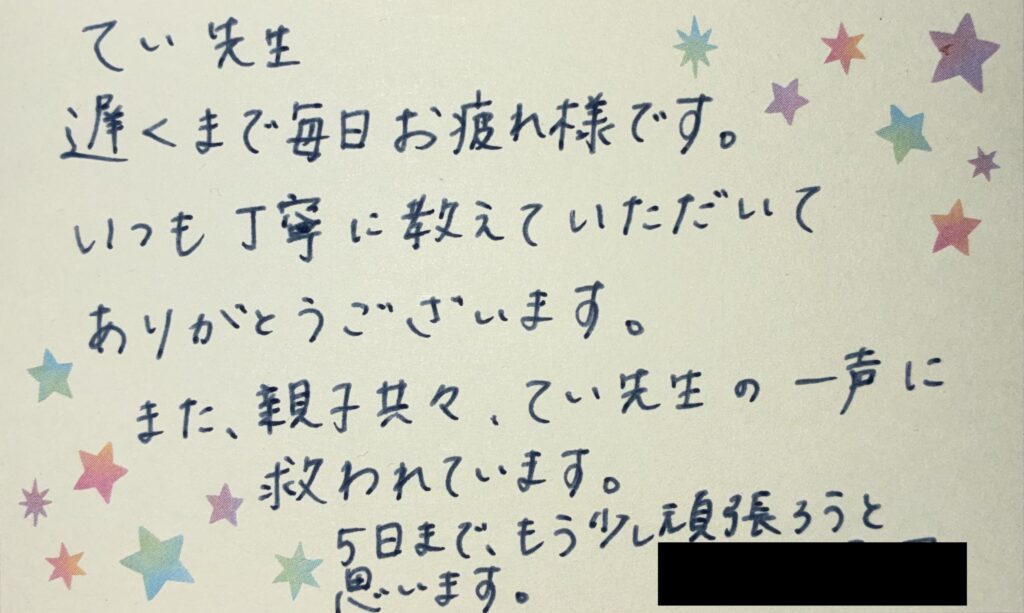 てい先生
遅くまで毎日お疲れ様です。
いつも丁寧に教えていただいて
ありがとうございます。
また、親子共々、てい先生の一声に
救われています。
5日まで、もう少し頑張ろうと
思います。